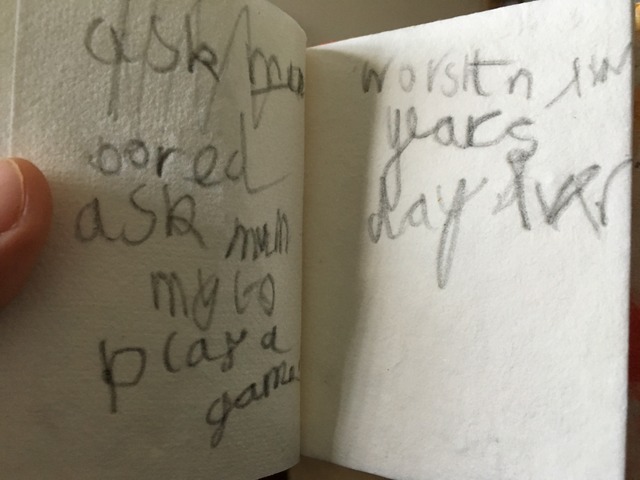 ask mum
bored
ask mum
my to
play a
game
worst n
years
day ever